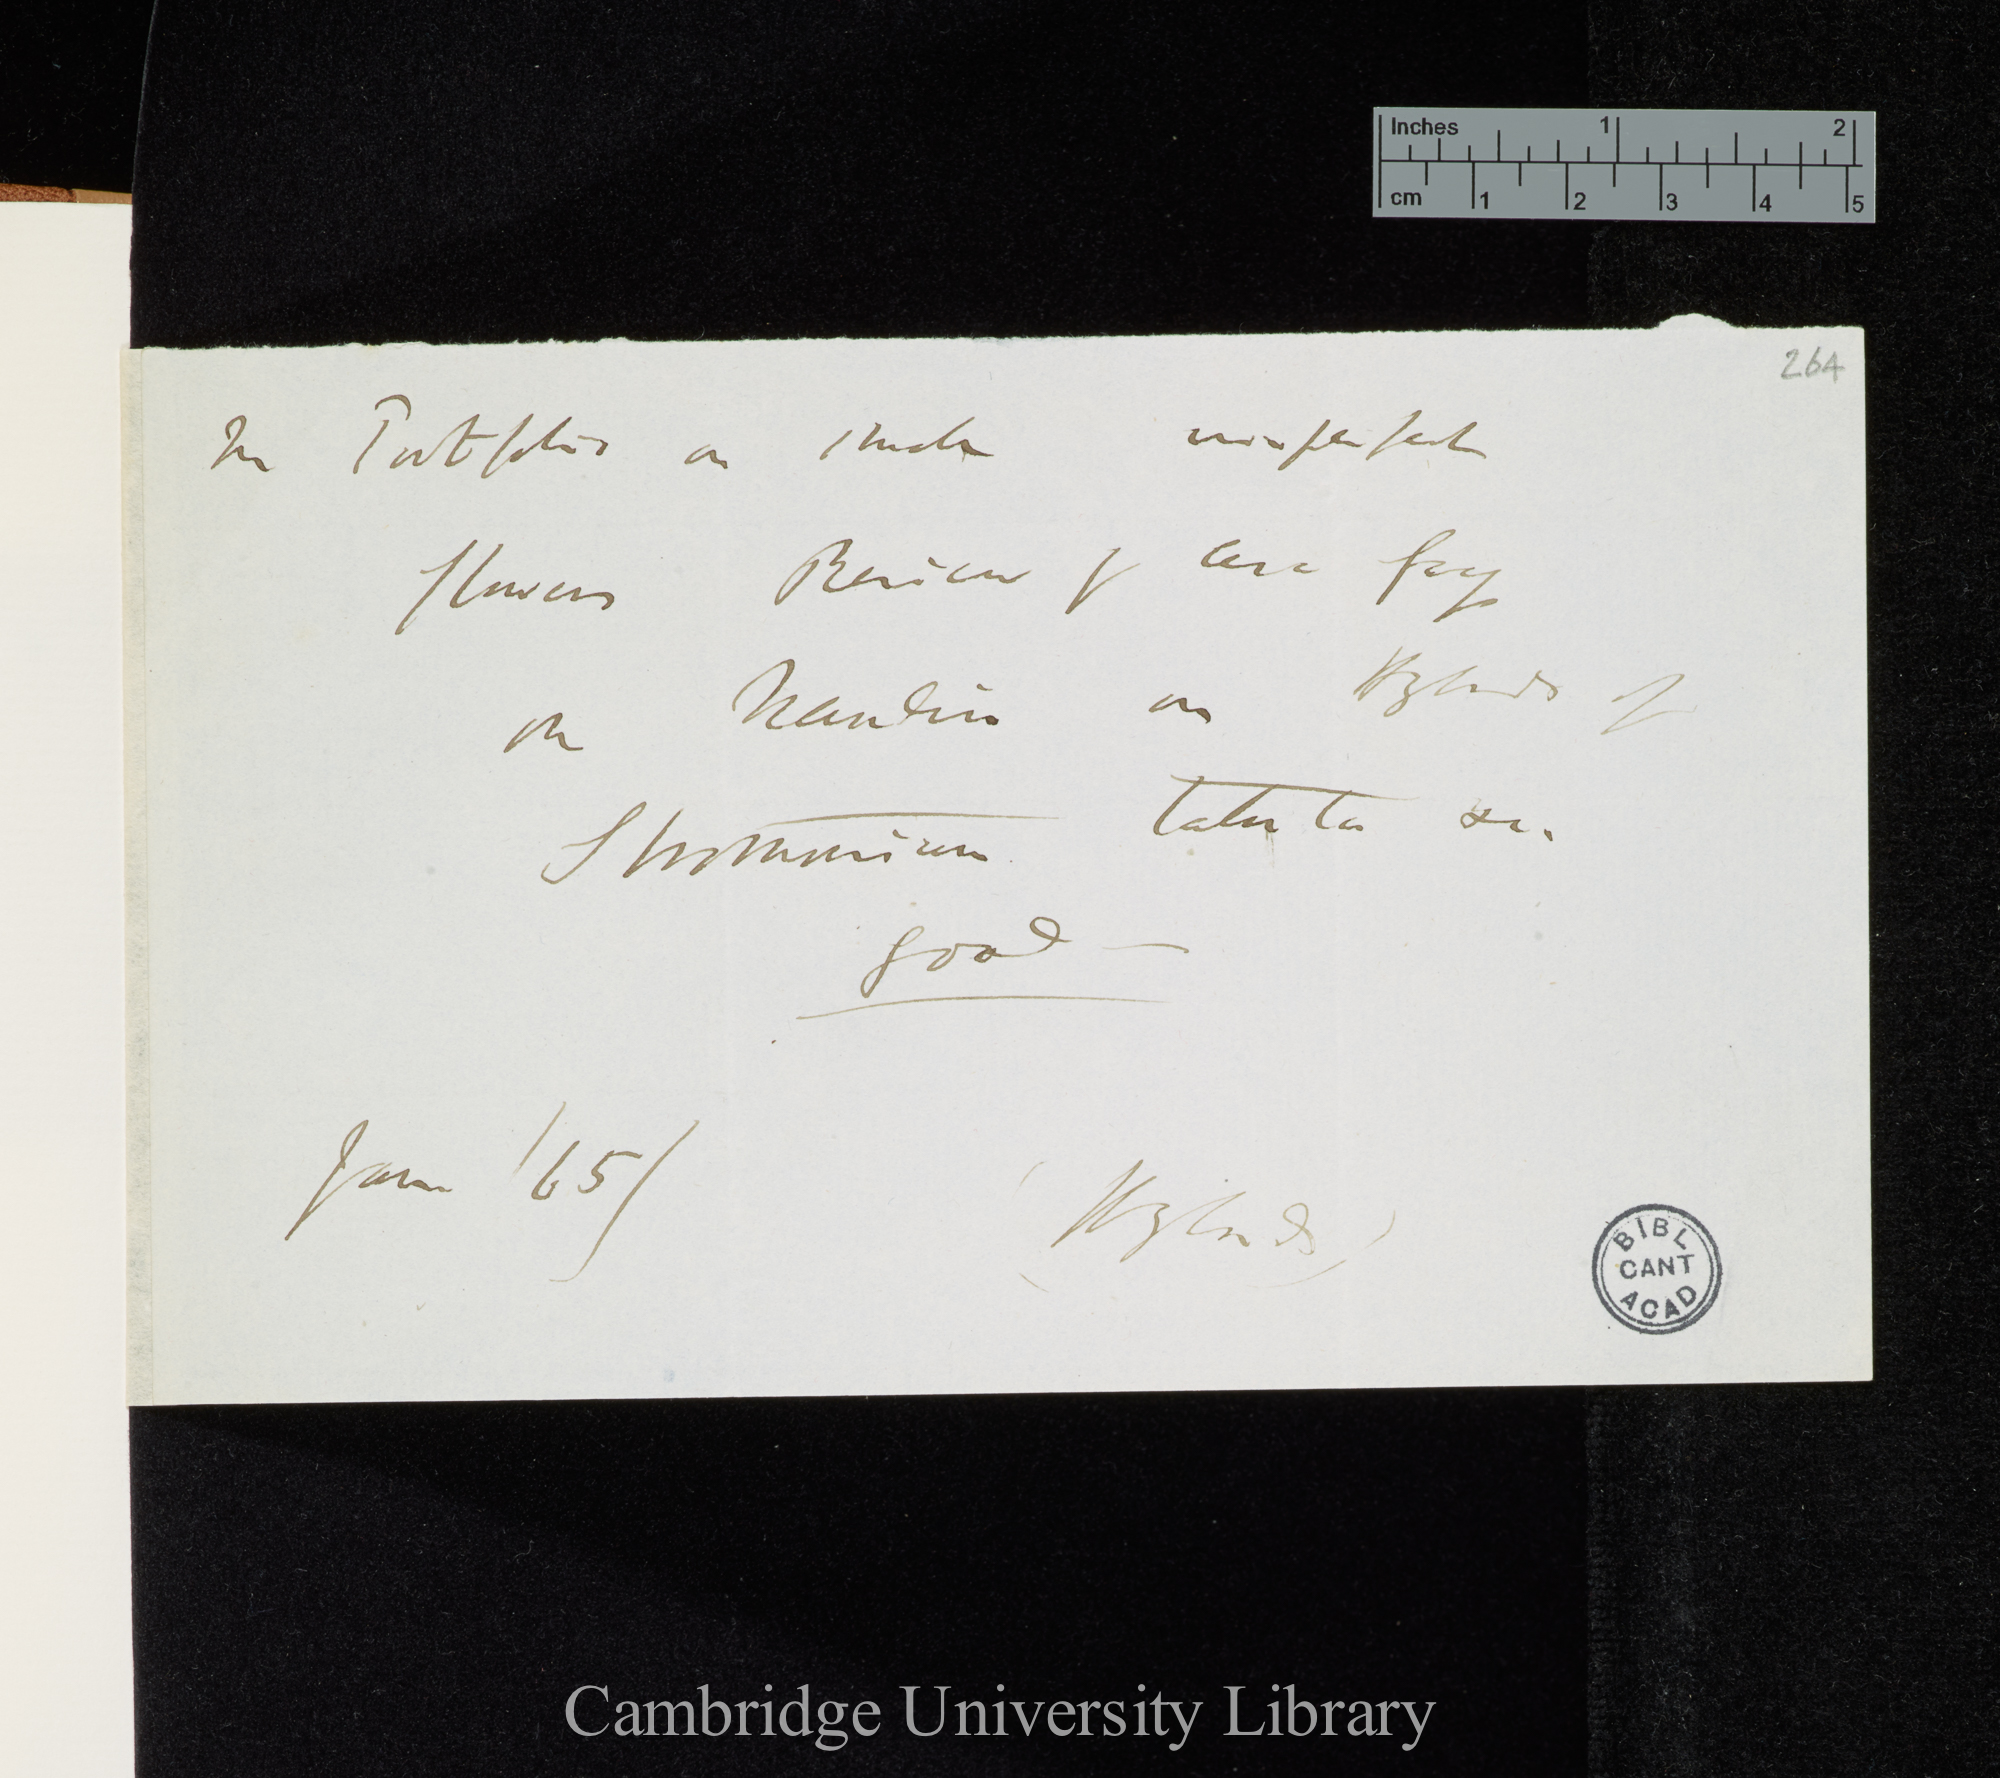 Inches 1 2
cm 1 2 3 4 5
264
In Portfolio on imperfect
flowers Review of Asa Gray
on Naudin on Hybrids of
Stramonium Tatula &c.
good —
Jan /65/
(Hybrids)
BIBL
CANT
ACAD
Cambridge University Library